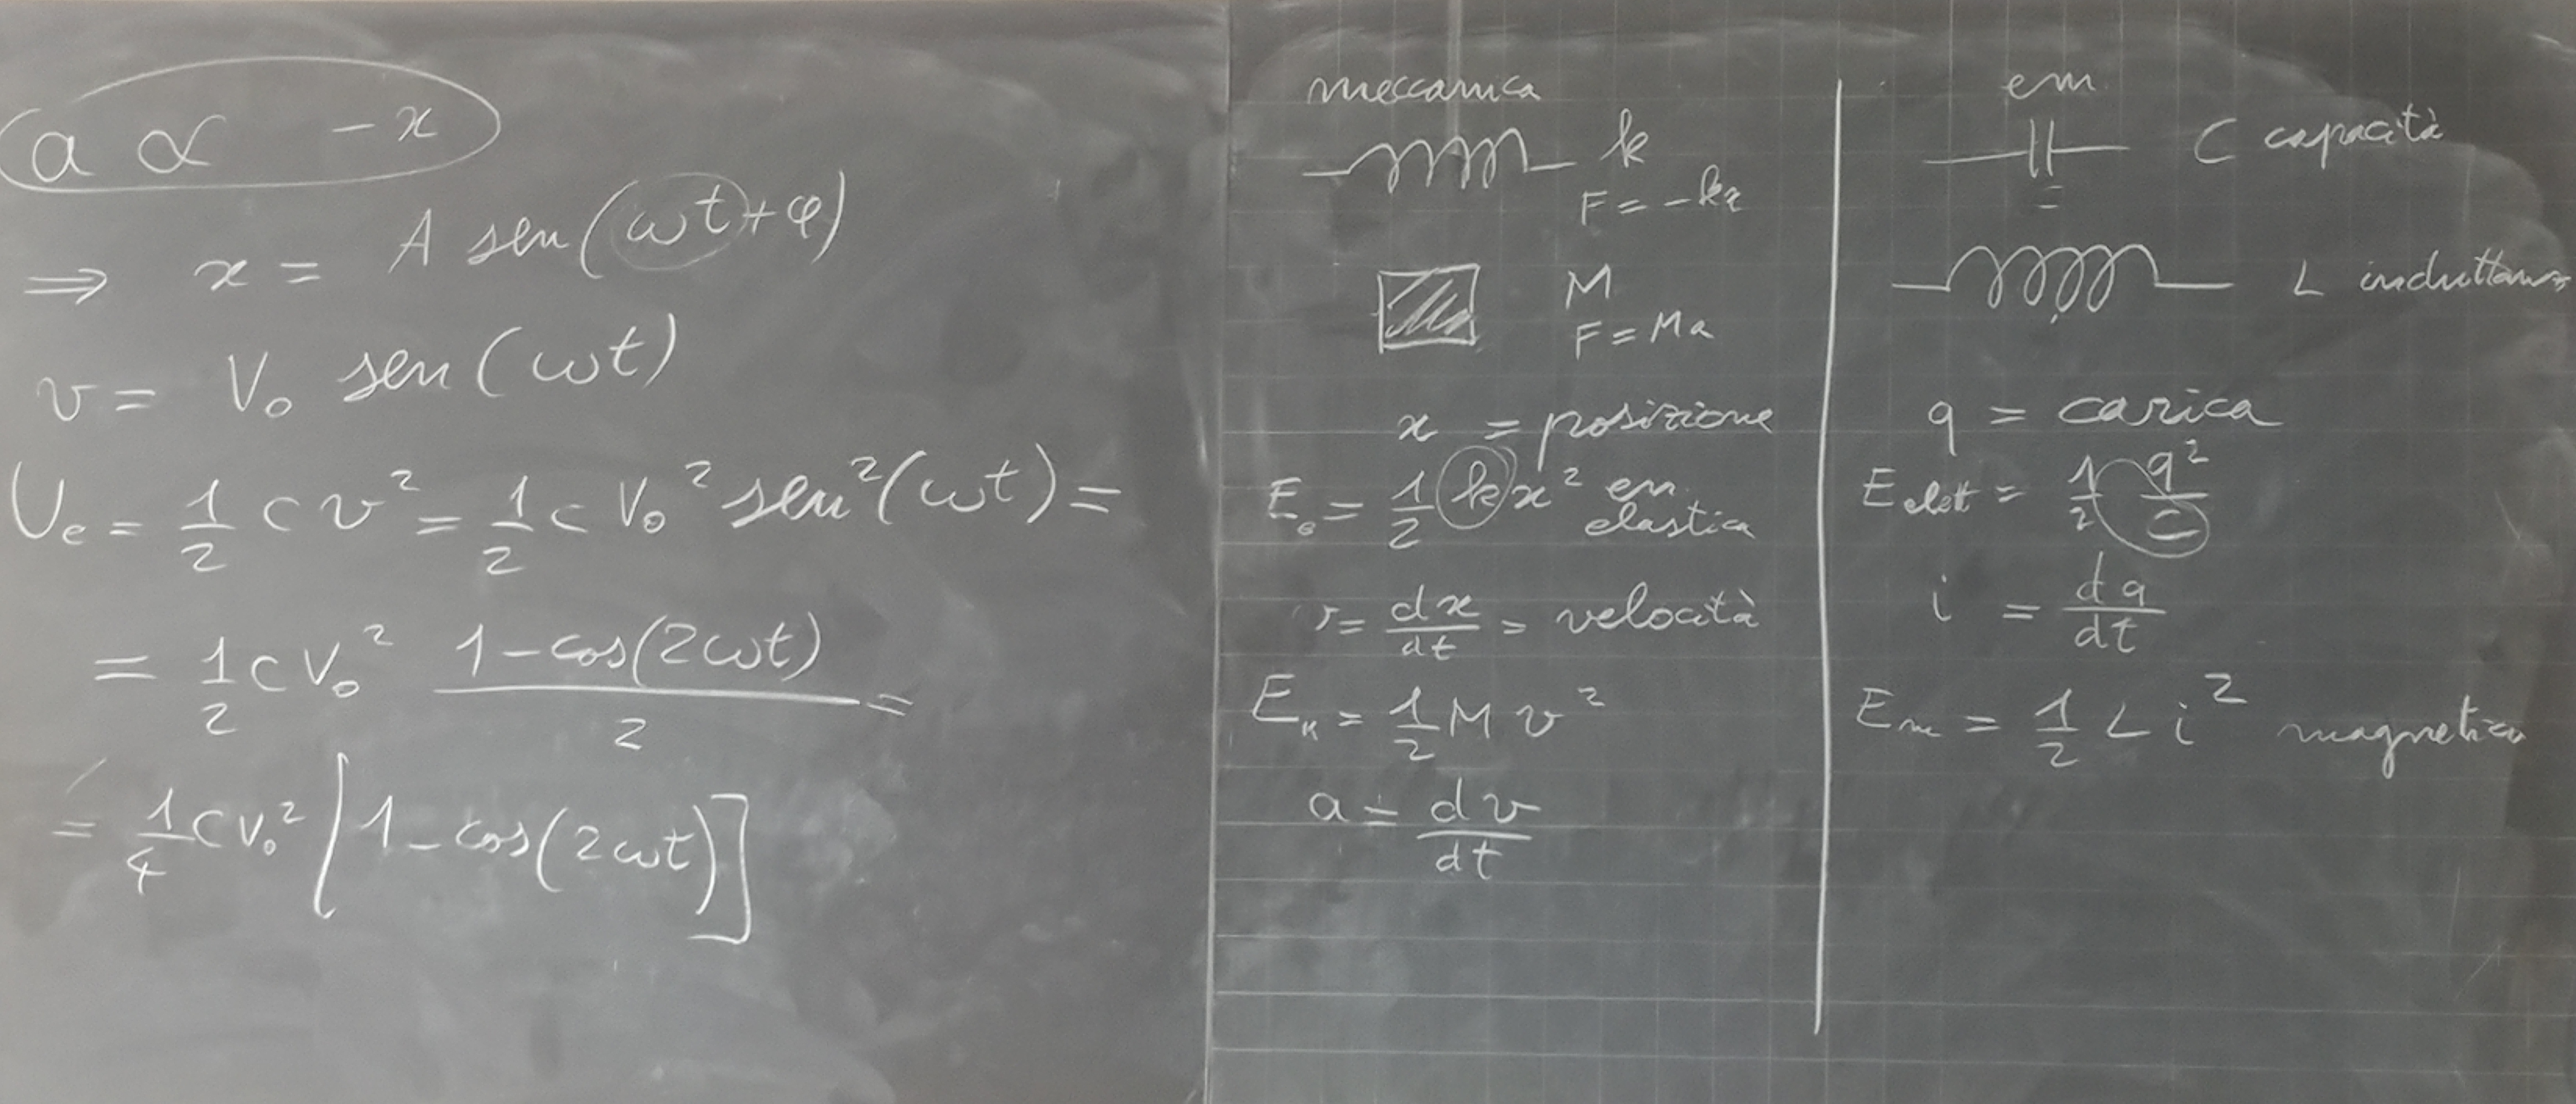 a ∝ -x
⇒ x = A sen(ωt+φ)
v = V₀ sen(ωt)
Uₑ = 1/2 C v² = 1/2 C V₀² sen²(ωt) =
= 1/2 C V₀² (1-cos(2ωt))/2 =
= 1/4 C V₀² [1-cos(2ωt)]
meccanica
k
F = -kx
M
F = Ma
x = posizione
Eₑ = 1/2 k x² en. elastica
v = dx/dt = velocità
Eₖ = 1/2 M v²
a = dv/dt
em
C capacità
L induttanza
q = carica
E elett = 1/2 q²/C
i = dq/dt
Eₘ = 1/2 L i² magnetica